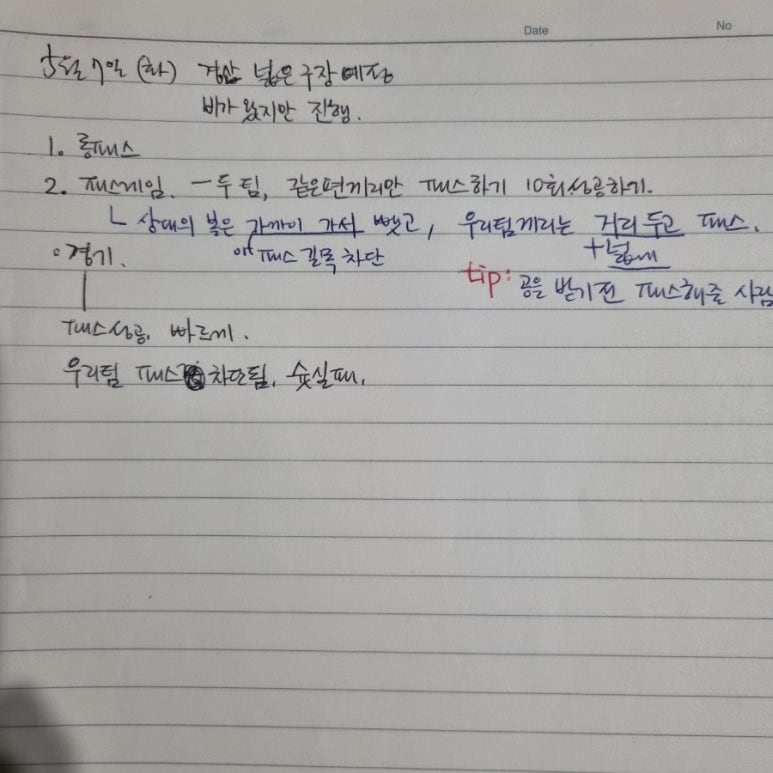 Date No
5월 7일 (화) 경산 넓은 구장 예정
비가 왔지만 진행.
1. 롱패스
2. 패스게임. — 두 팀, 같은편끼리만 패스하기 10회 성공하기.
ㄴ 상대의 볼은 가까이 가서 뺏고, 우리팀끼리는 거리 두고 패스.
패스 길목 차단 + 넓게
○ 경기.
tip: 공을 받기 전 패스해줄 사람
패스성공. 빠르게.
우리팀 패스 차단됨. 슛실패.